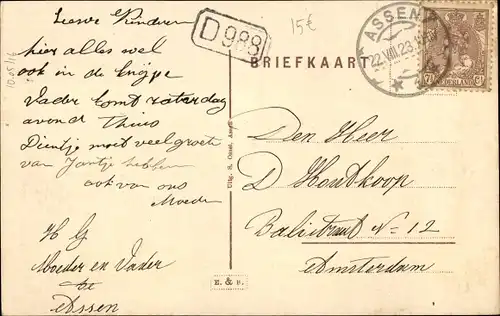 Lieve Kinderen
hier alles wel
ook in de knijpe
Vader komt zaterdag
avond Thuis
Dientje moet veel groete
van Jantje hebben
ook van ons
Moeder
H G
Moeder en Vader
te
Assen
D 988
15€
BRIEFKAART
ASSEN
22.VIII.23
7½ NEDERLAND Ct
Den Heer
D Houtkoop
Balistraat No 12
Amsterdam
E. & B.